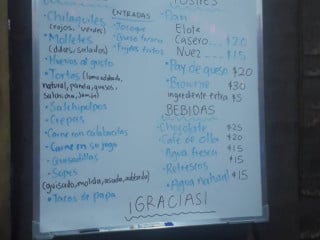 • Chilaquiles
(rojos, verdes)
• Molletes
(dulces, salados)
• Huevos al gusto
• Tortas (lomo, adobada,
natural, panela, quesos,
• Salchipulpos
• Crepas
• Carne con calabacitas
• Carne en su jugo
• Quesadillas
• Sopes
(guisado, molida, asada, adobada)
• Tacos de papa
ENTRADAS
• Jocoque
• Queso
• Frijoles
POSTRES
• Pan
Elote
Casero $20
Nuez $15
• Pay de queso $20
• Brownie $30
ingrediente extra $5
BEBIDAS
• Chocolate $25
• Café de olla $20
• Agua fresca $15
• Refrescos $15
• Agua natural $15
¡GRACIAS!